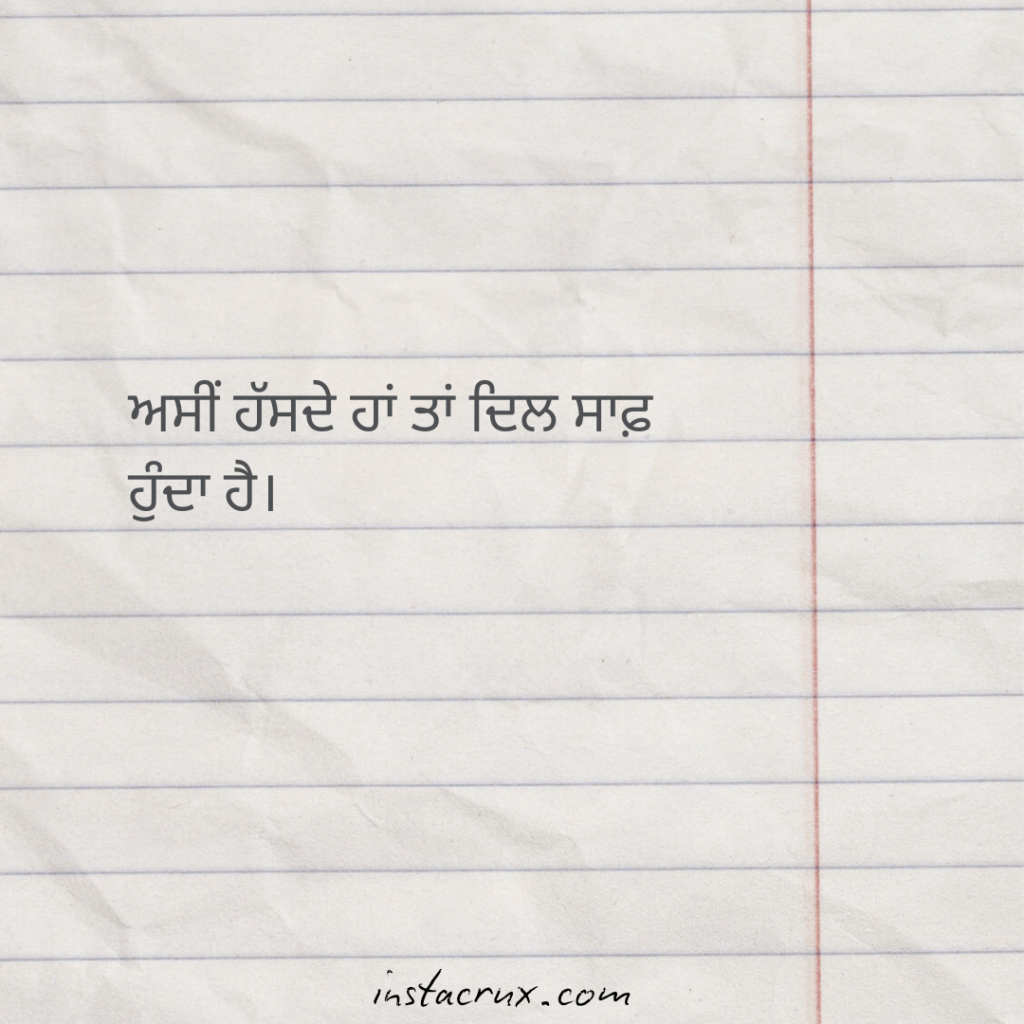 ਅਸੀਂ ਹੱਸਦੇ ਹਾਂ ਤਾਂ ਦਿਲ ਸਾਫ਼
ਹੁੰਦਾ ਹੈ।
instacrux.com